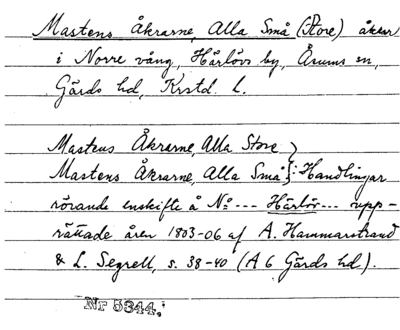 Mastens Åkrarne, Alla Små (Store) åkrar
i Norre vång, Härlövs by, Årums sn,
Gärds hd, Krstd. l.
Mastens Åkrarne, Alla Store
Mastens Åkrarne, Alla Små }: Handlingar
rörande enskifte å No --- Härlöv --- upp-
rättade åren 1803-06 af A. Hammarstrand
& L. Segrell, s. 38-40 (A 6 Gärds hd).
Nr 5344.